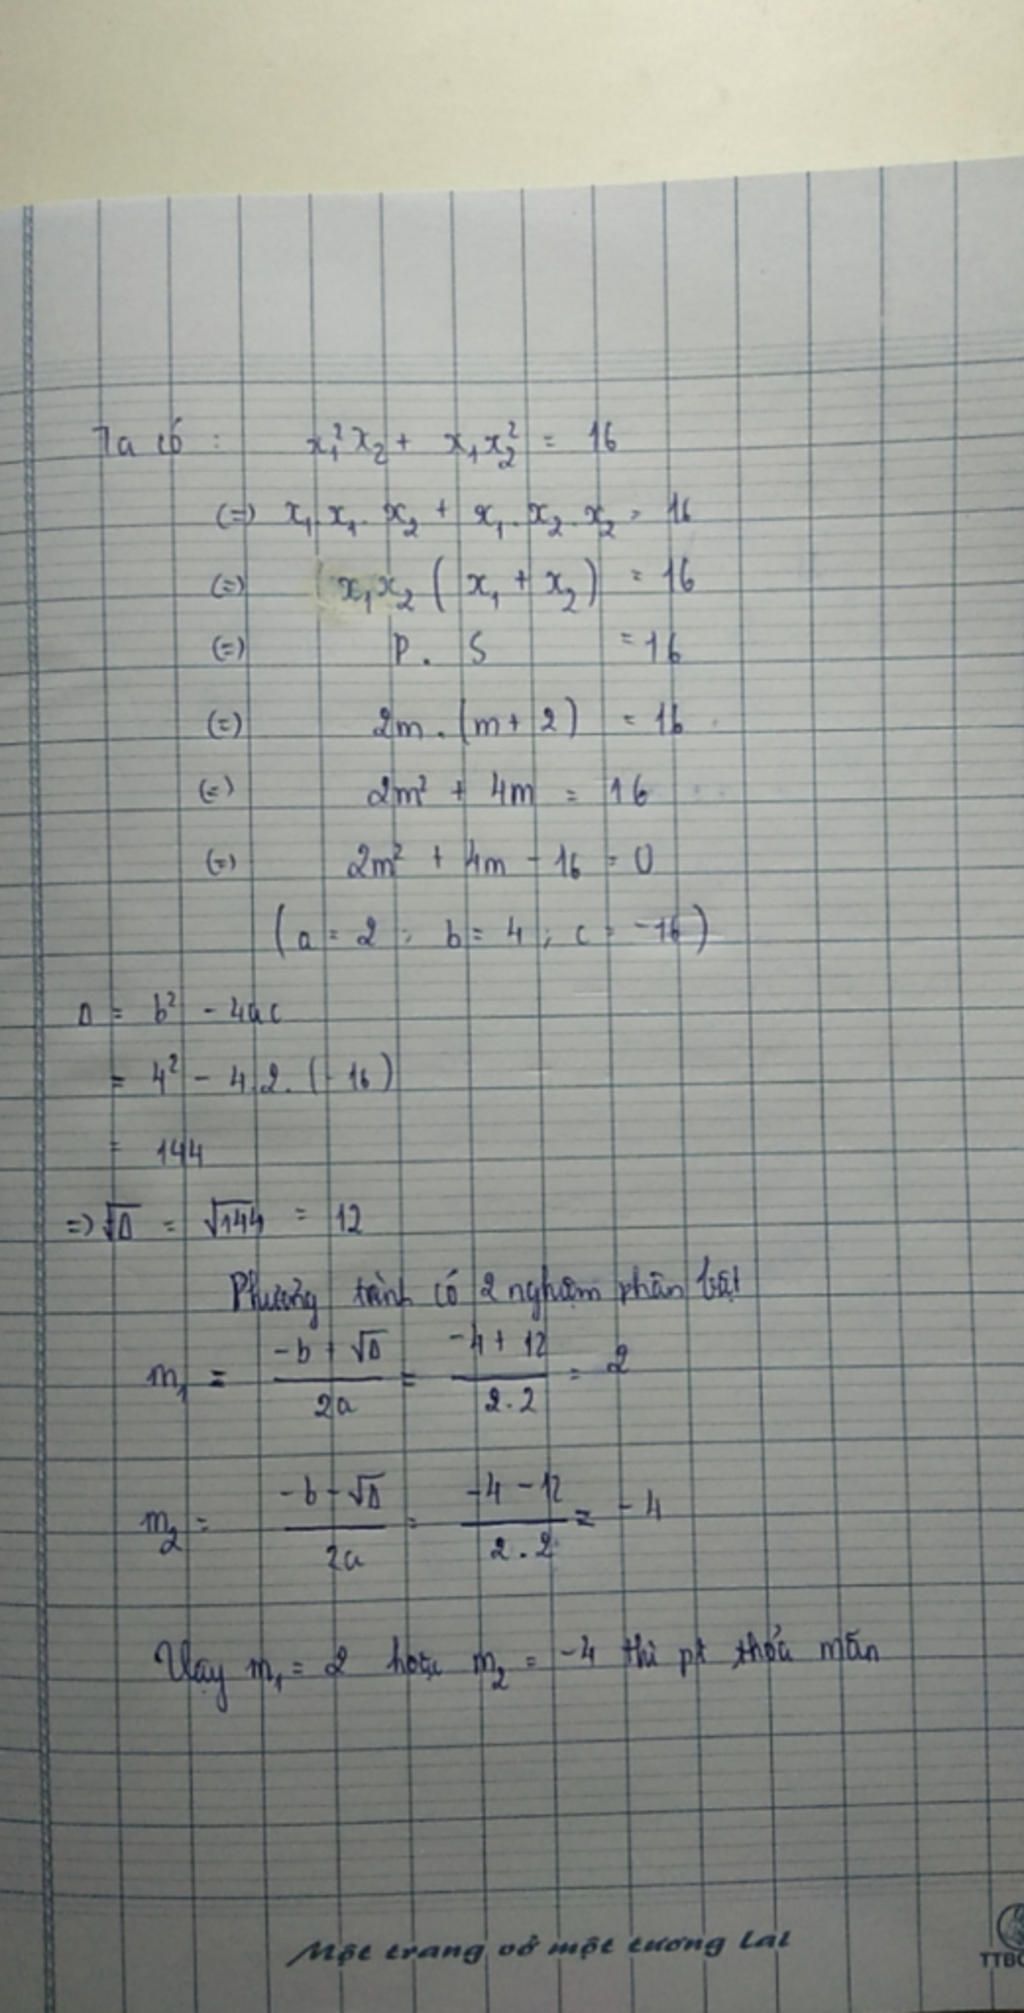 Ta có : x₁²x₂ + x₁x₂² = 16
(=) x₁.x₁.x₂ + x₁.x₂.x₂ = 16
(=) x₁x₂ ( x₁ + x₂ ) = 16
(=) P . S = 16
(=) 2m . (m + 2) = 16
(=) 2m² + 4m = 16
(=) 2m² + 4m - 16 = 0
( a = 2 ; b = 4 ; c = -16 )
Δ = b² - 4ac
= 4² - 4.2.(-16)
= 144
=) √Δ = √144 = 12
Phương trình có 2 nghiệm phân biệt
m₁ = (-b + √Δ)/2a = (-4 + 12)/2.2 = 2
m₂ = (-b - √Δ)/2a = (-4 - 12)/2.2 = -4
Vậy m₁ = 2 hoặc m₂ = -4 thì pt thỏa mãn
Một trang vở một tương lai